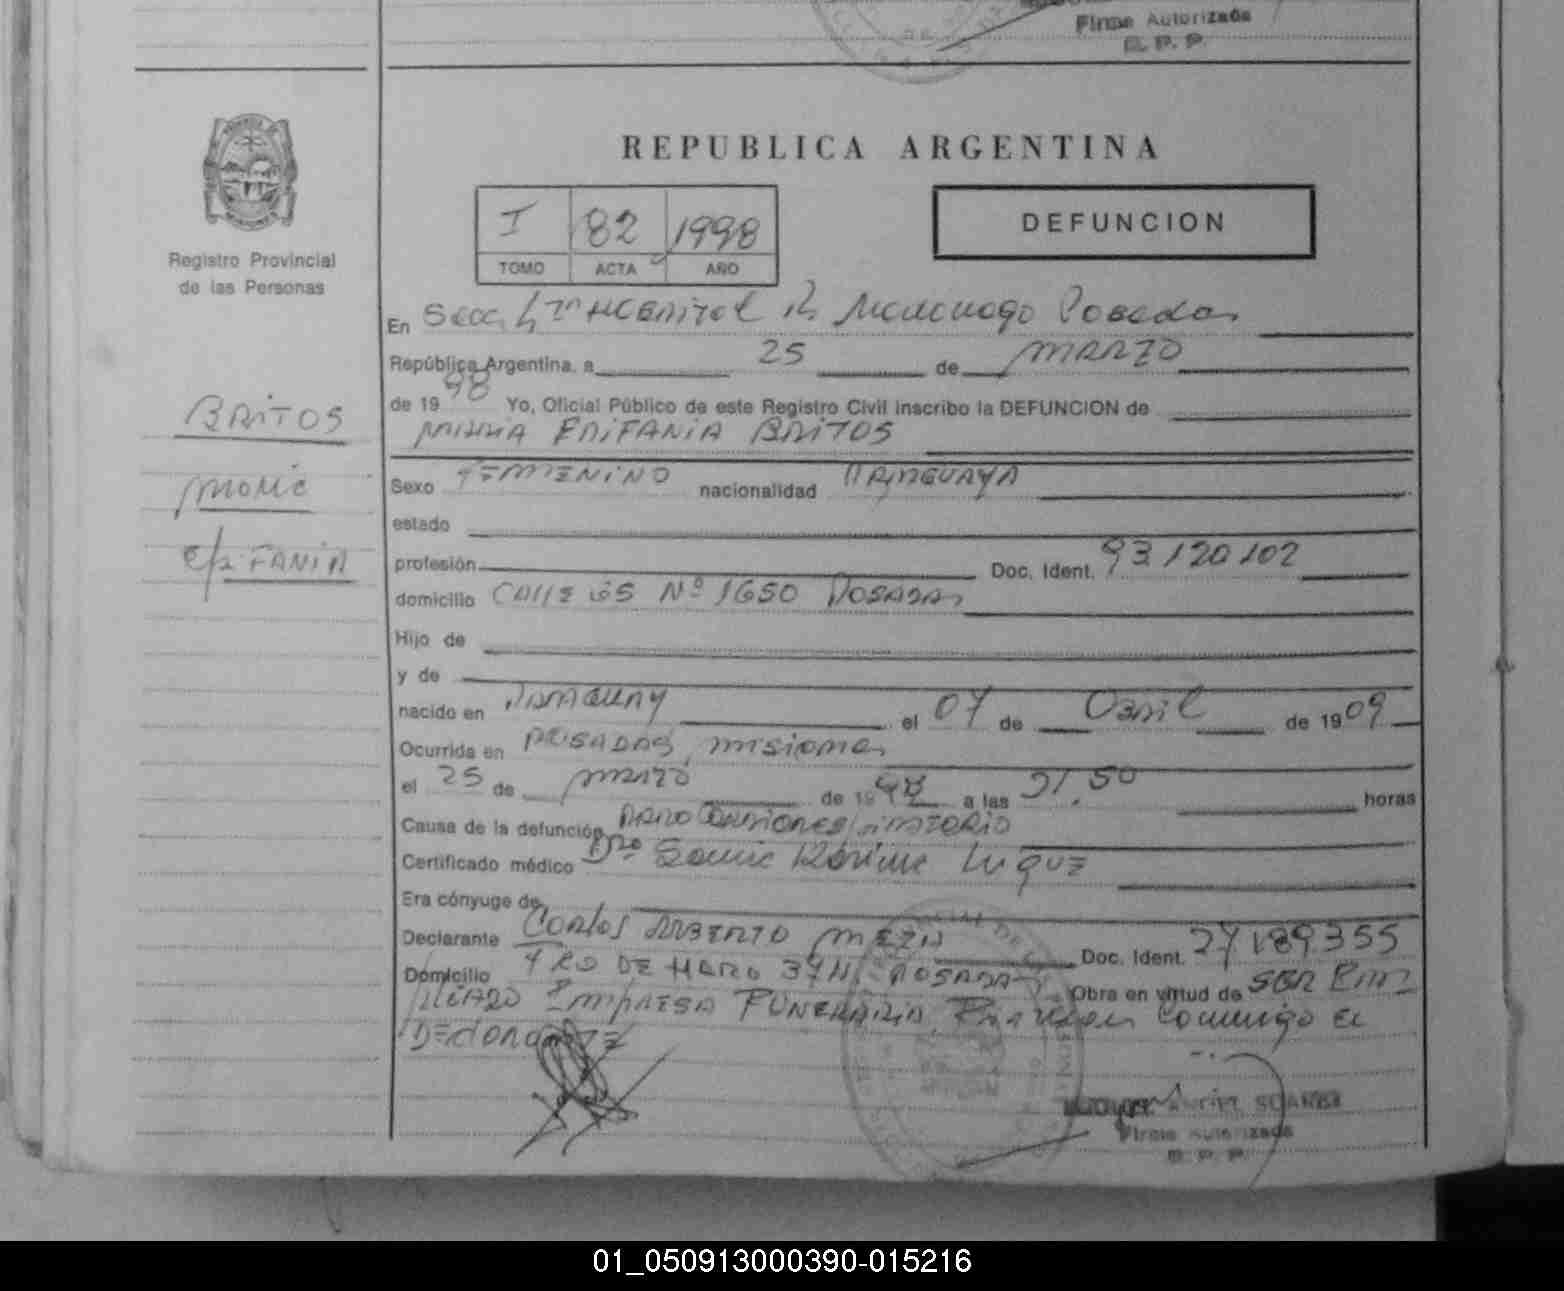 Firma Autorizada
R. P. P.
REPUBLICA ARGENTINA
I 82 1998
TOMO ACTA AÑO
DEFUNCION
Registro Provincial
de las Personas
En Posadas
República Argentina, a 25 de MARZO
de 1998 Yo, Oficial Público de este Registro Civil inscribo la DEFUNCION de
EPIFANIA BRITOS
BRITOS
MARIA
EPIFANIA
Sexo FEMENINO nacionalidad PARAGUAYA
estado
profesión Doc. Ident. 93120102
domicilio CALLE 65 Nº 1650 POSADAS
Hijo de
y de
nacido en PARAGUAY el 07 de Abril de 1909
Ocurrida en POSADAS, MISIONES
el 25 de MARZO de 1998 a las 21,50 horas
Causa de la defunción PARO CARDIORESPIRATORIO
Certificado médico Dra Luque
Era cónyuge de
Declarante CARLOS ALBERTO MEZA Doc. Ident. 27189355
Domicilio POSADAS Obra en virtud de SER EM
PLEADO EMPRESA FUNERARIA Firman conmigo el
DECLARANTE
Firma Autorizada
R. P. P.
01_050913000390-015216